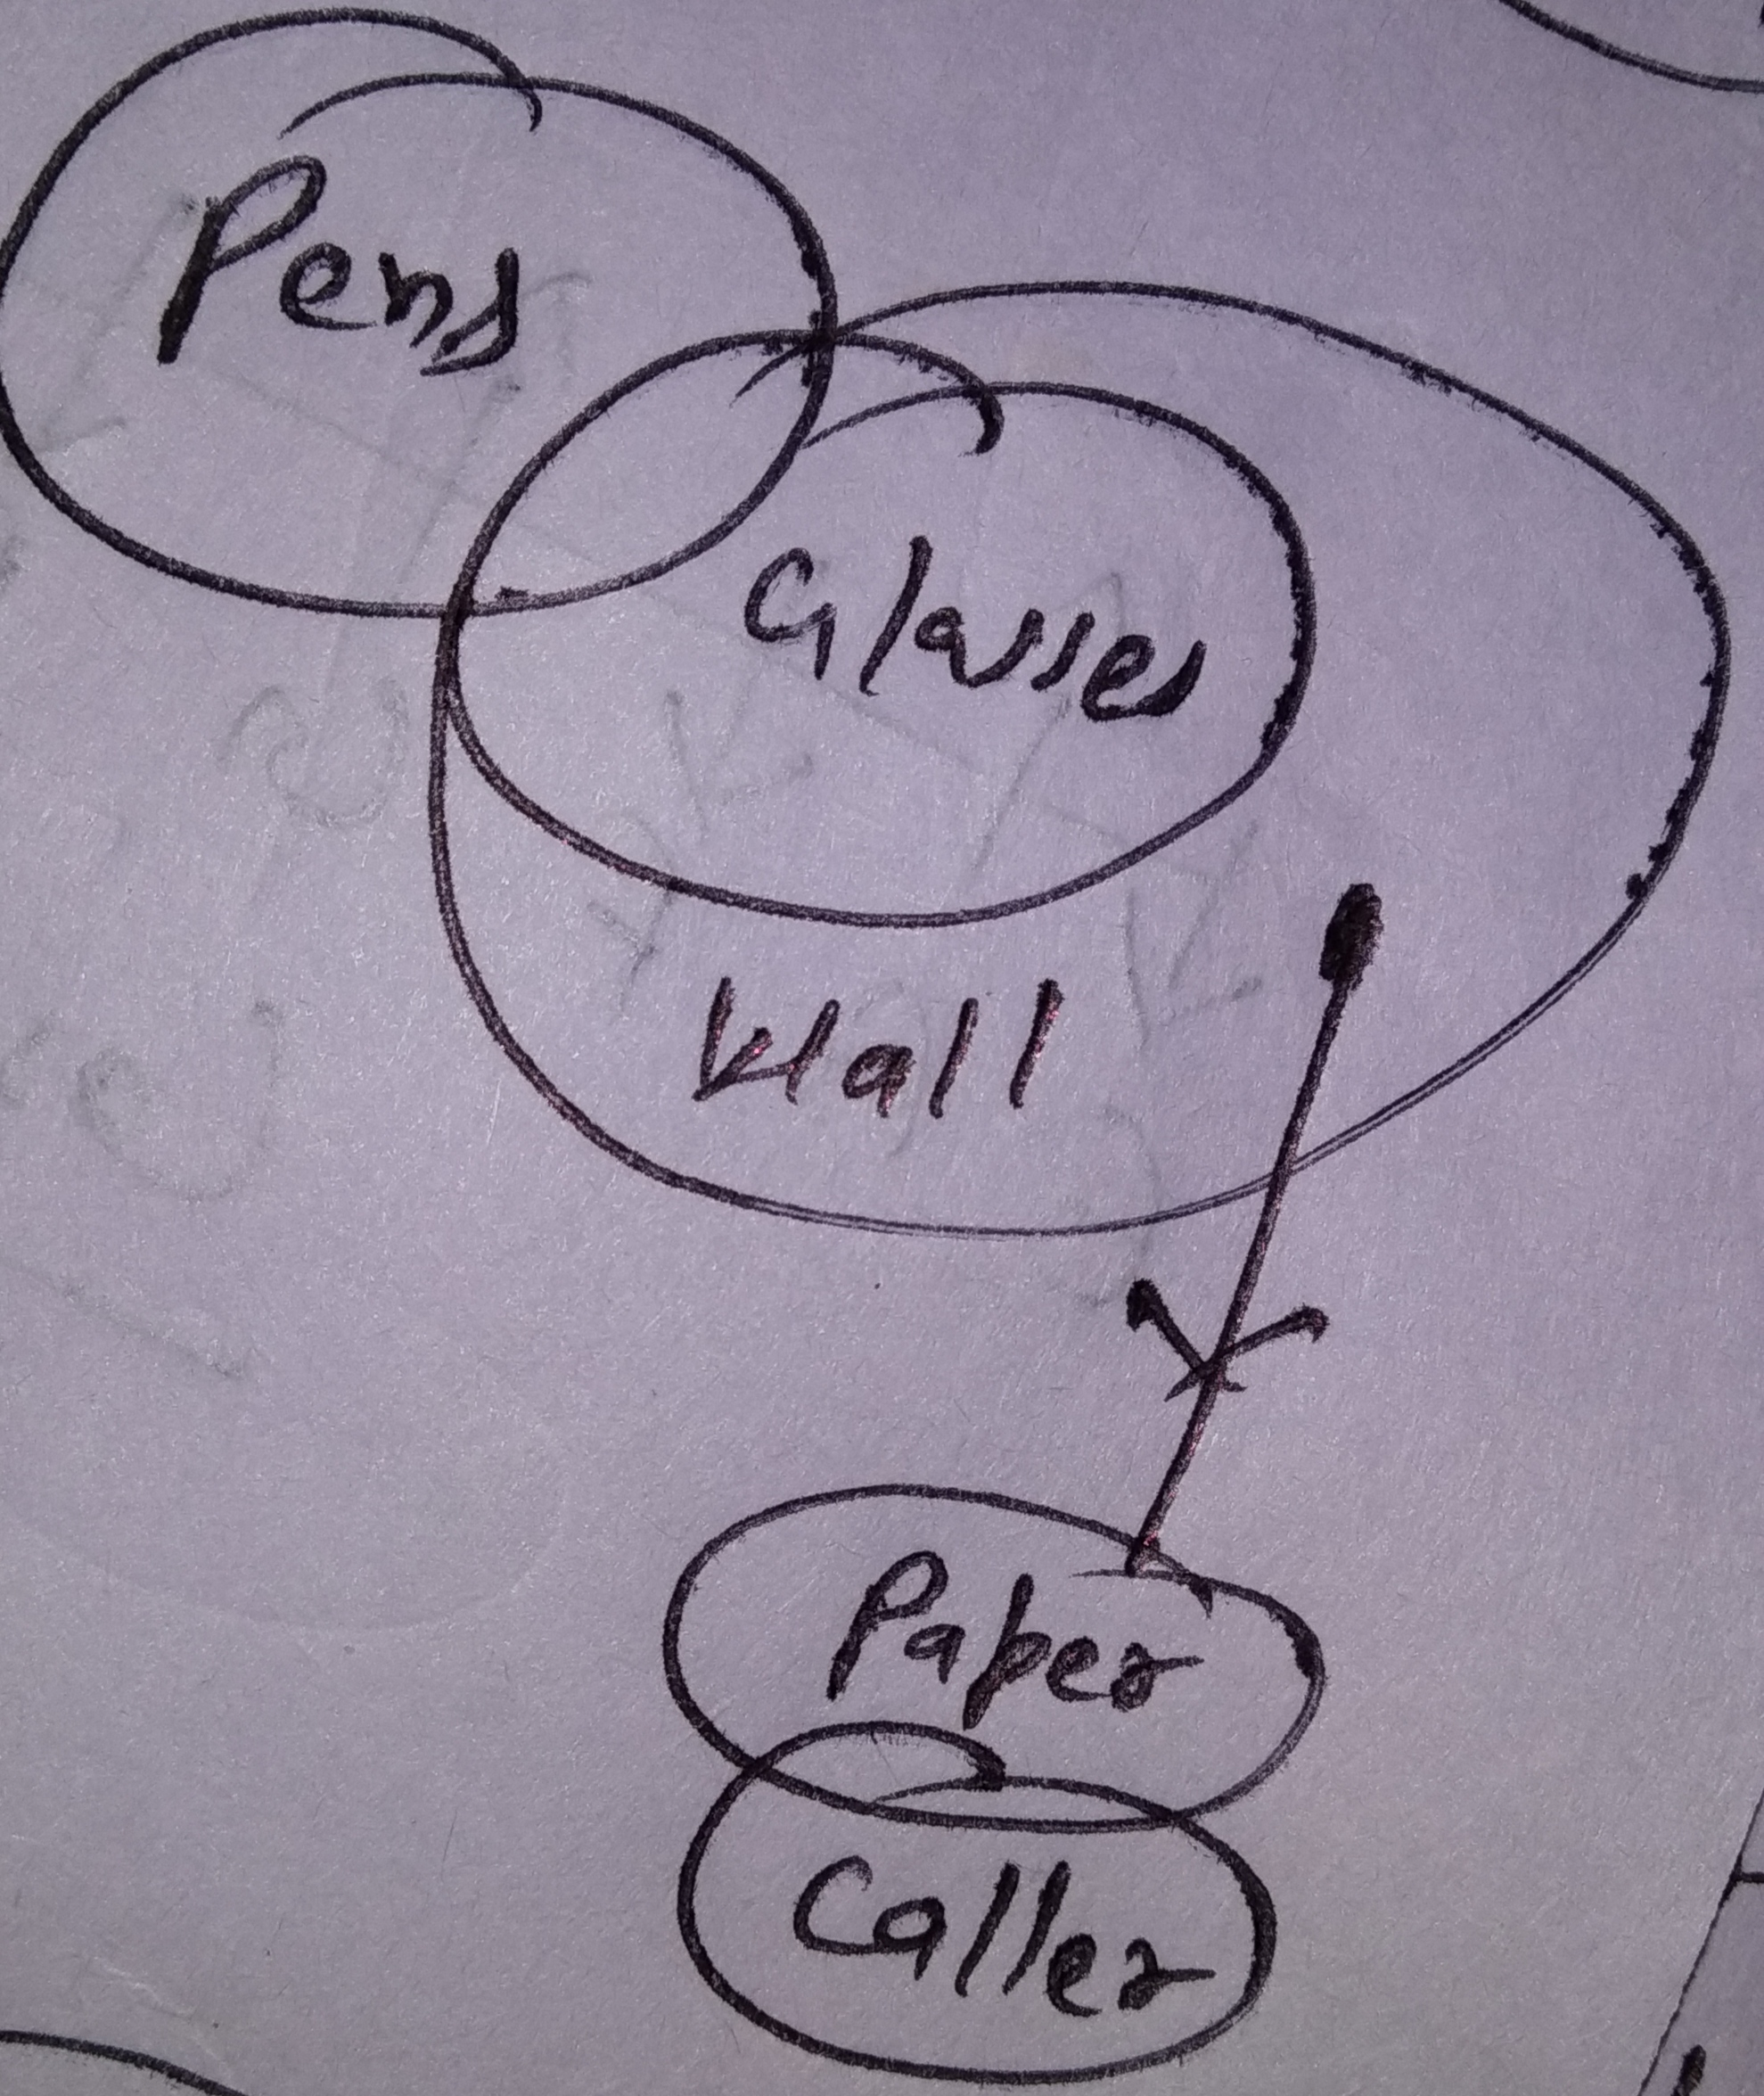 Pens
Glasses
Wall
Paper
Caller